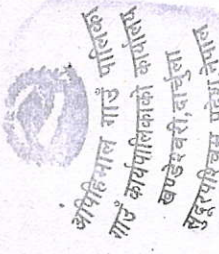 अपिहिमाल गाउँ पालिका
गाउँ कार्यपालिकाको कार्यालय
खण्डेश्वरी, दार्चुला
सुदूरपश्चिम प्रदेश नेपाल